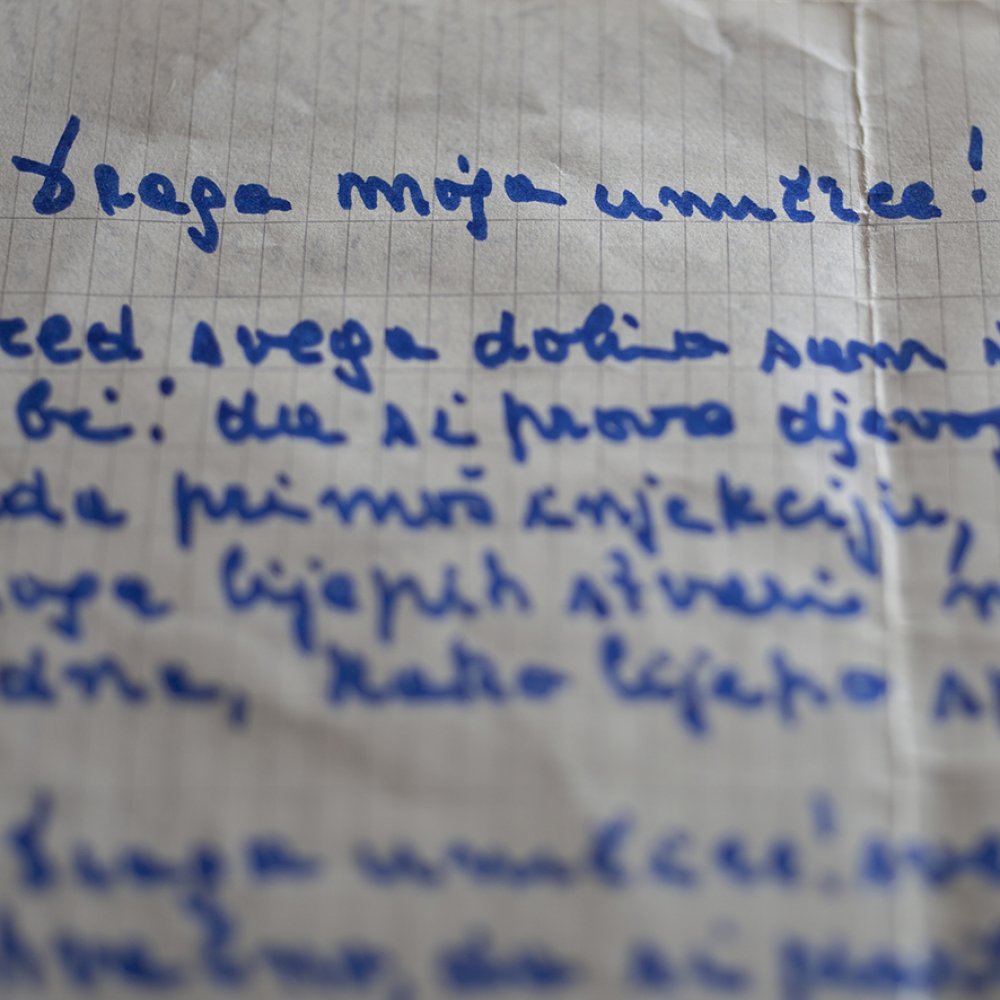 Draga moja unučice!
red svega dobila sam
bi: da si prava djevoj
da primaš injekciju,
oga lijepih stvari
dna, kako lijepo
Draga unučice! sve
da si